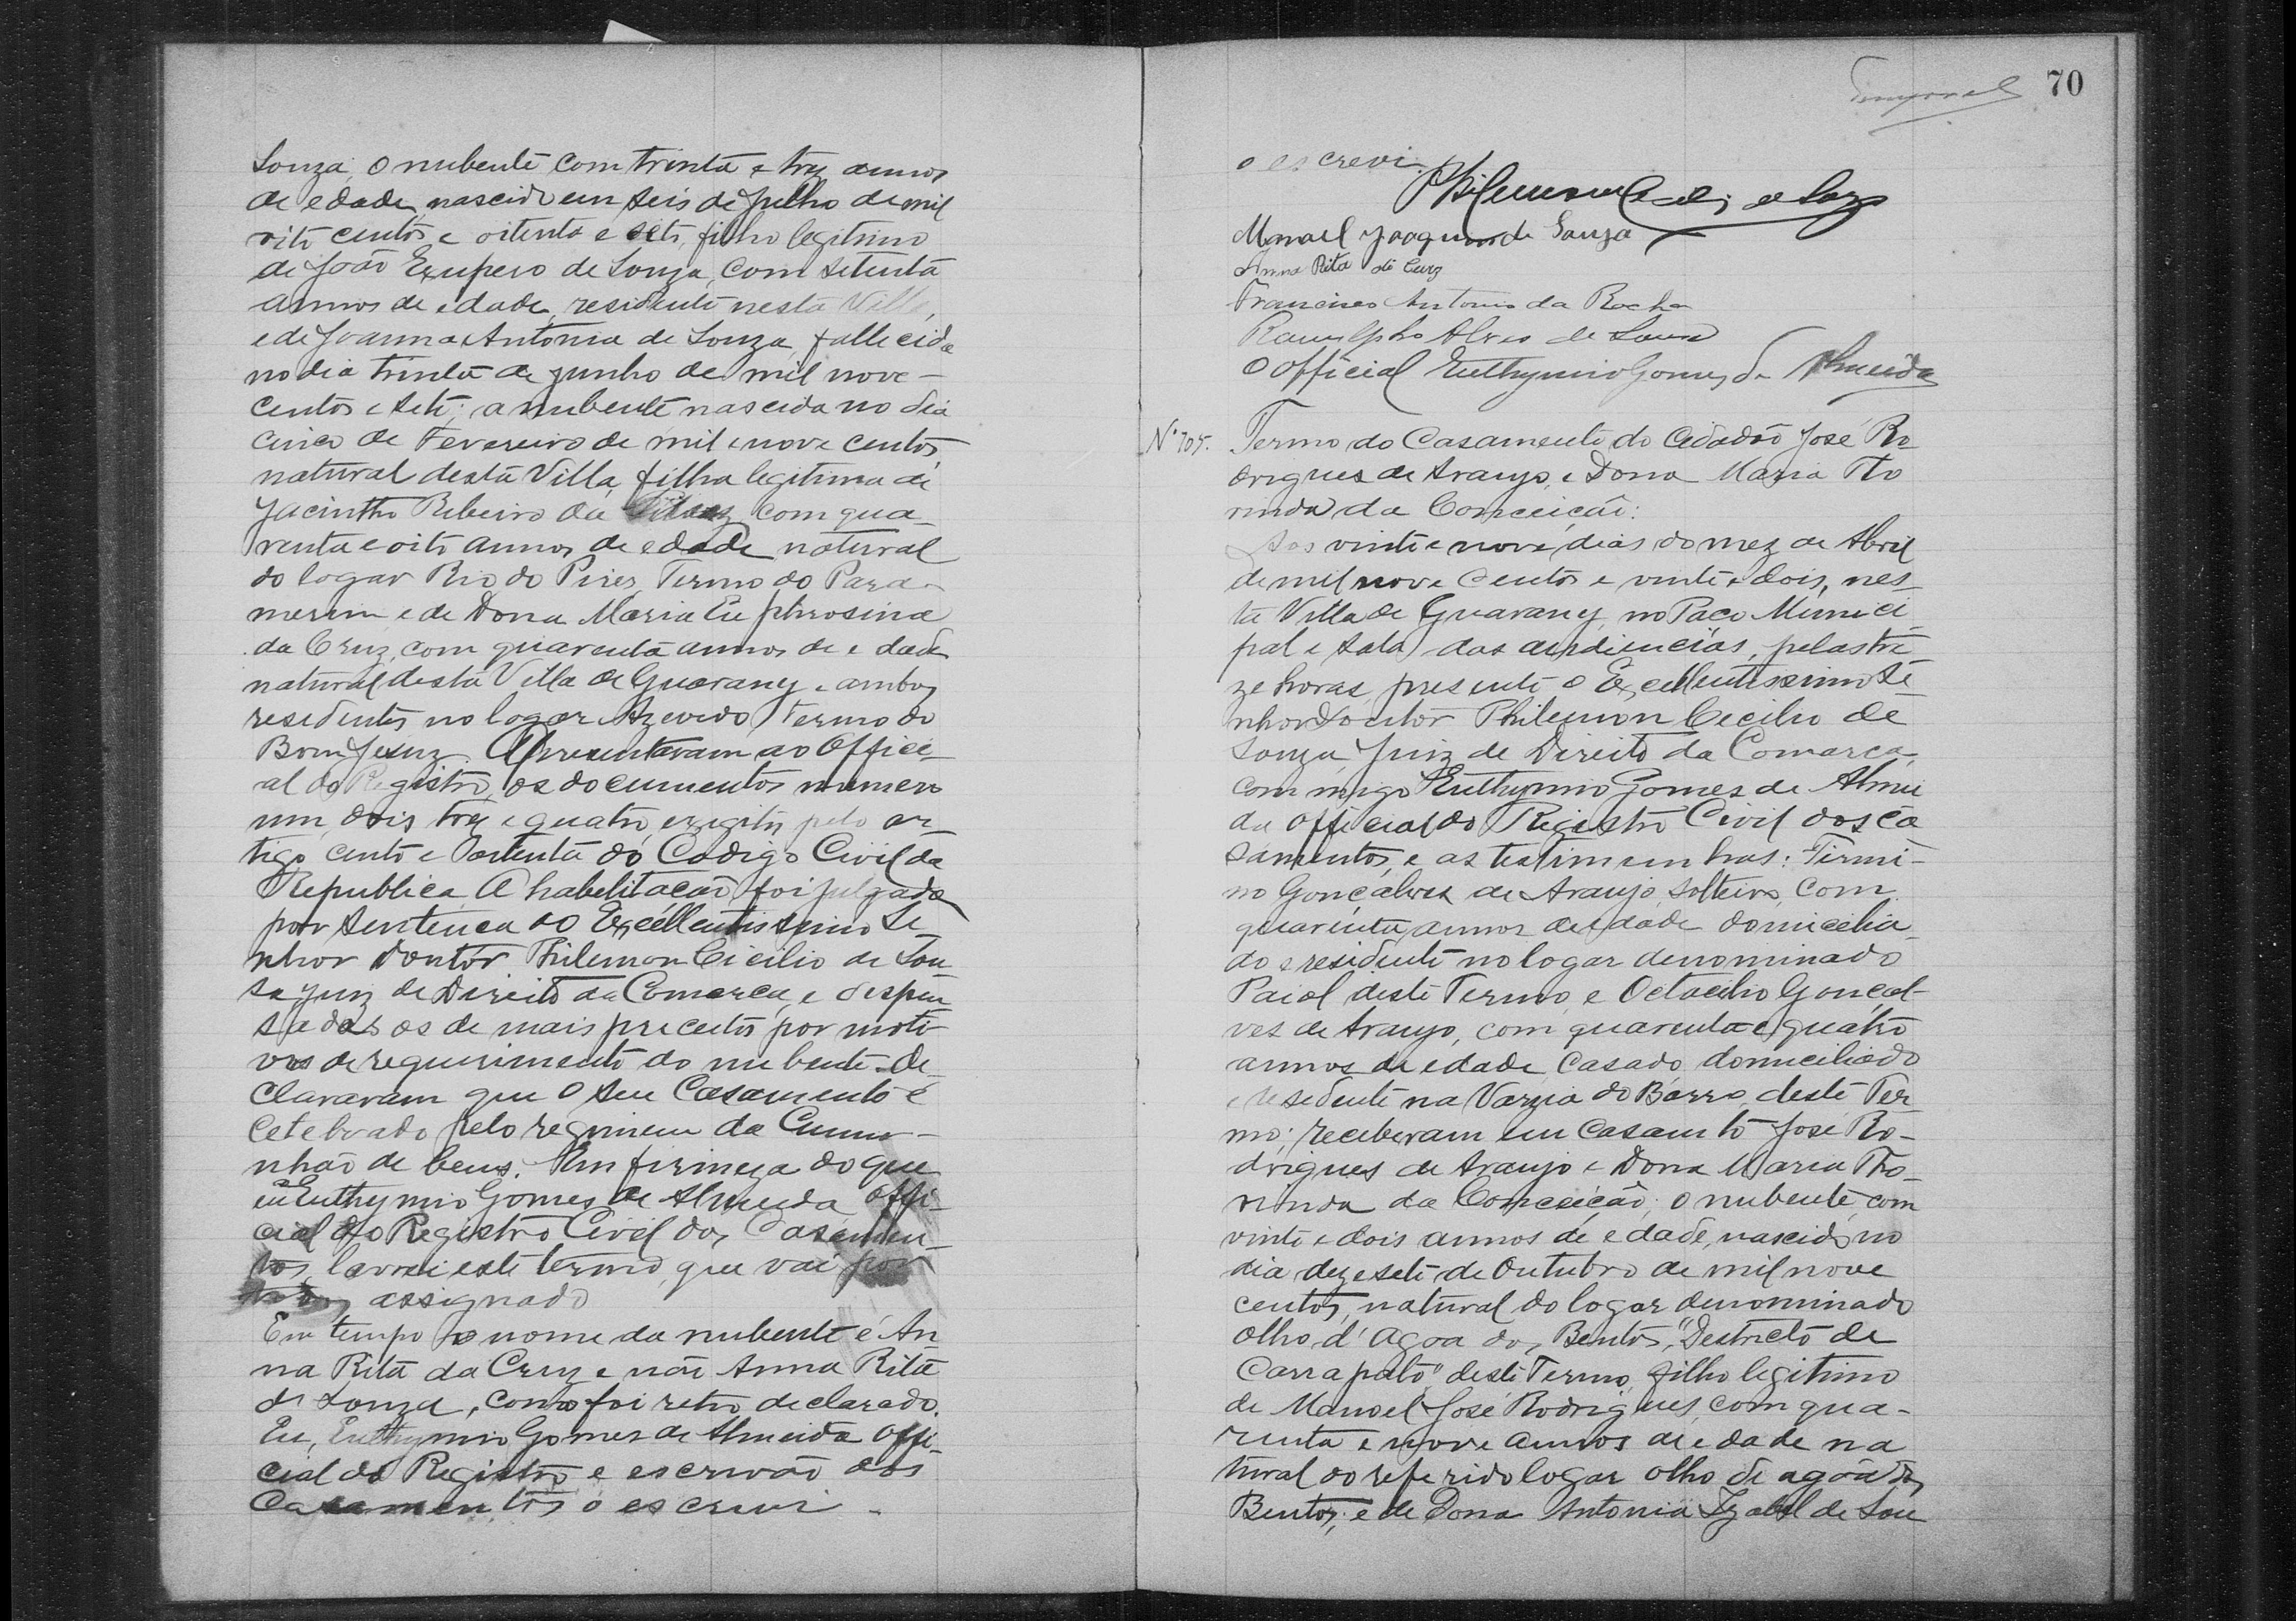 Souza; o nubente com trinta e trez annos
de edade, nascido em seis de Julho de mil
oito centos e oitenta e sete, filho legitimo
de João Exupero de Souza, com setenta
annos de edade, residente nesta Villa,
e de Joanna Antonia de Souza, fallecida
no dia trinta de junho de mil nove-
centos e sete; a nubente nascida no dia
cinco de Fevereiro de mil e nove centos
natural desta Villa, filha legitima de
Jacintho Ribeiro da com qua-
renta e oito annos de edade natural
do logar Rio do Pires, Termo do Para-
merim e de Dona Maria Euphrosina
da Cruz, com quarenta annos de edade
natural desta Villa de Guarany e ambos
residentes no logar Azevedo Termo do
Bom Jesuz. Apresentaram ao Offici-
al do Registro, os documentos numero
um, dois, trez e quatro, exigitos pelo ar-
tigo cento e oitenta do Codigo Civil da
Republica. A habelitação foi julgada
por sentença do Excellentissimo Se-
nhor Doutor Philemon Cicilio de Sou-
sa Juiz de Direito da Comarca, e despen-
sados os de mais preceitos por moti-
vos de requerimento do nubente. De-
clararam que o seu Casamento é
Celebrado pelo regimem da Cummu-
nhão de bens. Em firmeza do que
eu Euthymio Gomes de Almeida Offi-
cial do Registro Civil dos Casamen-
tos, lavrei este termo, que vai por
todos assignado
Em tempo o nome da nubente é An-
na Rita da Cruz e não Anna Rita
de Souza, como foi retro declarado.
Eu, Euthymio Gomes de Almeida Offi-
cial do Registro e escrivão dos
Casamentos o escrevi.
70
o escrevi.
Philemon Cecilio de Souza
Manoel Joaquim de Souza
Anna Rita da Cruz
Francisco Antonio da Rocha
Ranulpho Alves de Souza
O Official Euthymio Gomes de Almeida
Nº 705. Termo do Casamento do Cidadão José Ro-
drigues de Araujo, e Dona Maria Flo
rinda da Conceição:
Aos vinte e nove dias do mez de Abril
de mil nove centos e vinte e dois, nes-
ta Villa de Guarany, no Paço Munici
pal e sala das audiencias, pelas tre-
ze horas, presente o Excellentissimo Se-
nhor Doutor Philemon Cecilio de
Souza, Juiz de Direito da Comarca,
com migo Euthymio Gomes de Almei
da official do Registro Civil dos Ca
samentos, e as testimunhas: Firmi-
no Gonçalves de Araujo, solteiro, com
quarenta annos de edade domicilia-
do e residente no logar denominado
Paiol deste Termo, e Octacilio Gonçal-
ves de Araujo, com quarenta e quatro
annos de edade, casado, domiciliado
e residente na Varzia do Barro, deste Ter-
mo; receberam em casamento José Ro-
drigues de Araujo e Dona Maria Flo-
rinda da Conceição; o nubente, com
vinte e dois annos de edade, nascido no
dia dezesete de Outubro de mil nove
centos, natural do logar denominado
Olho d'agoa dos Bentos, "Destricto de
Carrapato" deste Termo, filho legitimo
de Manoel José Rodrigues, com qua-
renta e nove annos de edade na
tural do referido logar olho de agoa dos
Bentos; e de Dona Antonia Izabel de Sou